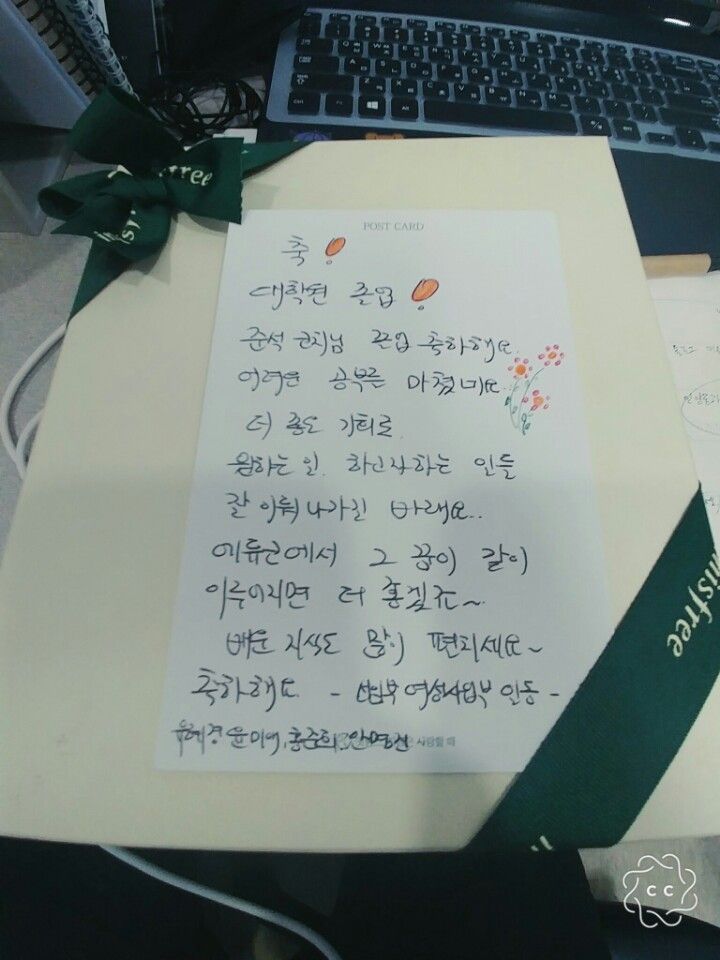 innisfree
POST CARD
축!
대학원 졸업!
준석 코치님 졸업 축하해요.
어려운 공부를 마쳤네요..
더 좋은 기회로
원하는 일, 하고자하는 일들
잘 이뤄나가길 바래요..
에듀코에서 그 꿈이 같이
이루어지면 더 좋겠죠~
배운 지식도 많이 펼치세요~
축하해요 - 여성사업부 일동 -
윤미, 홍준희, 안명신
사랑할 때
nnisfree
CC